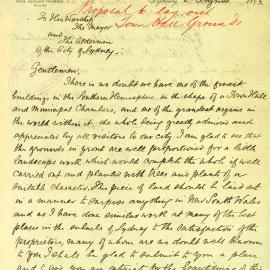 Proposal to lay out
Town Hall Grounds
Sydney August 1893
To His Worship
The Mayor
and
The Aldermen
of the City of Sydney.
Gentlemen,
There is no doubt we have one of the finest
buildings in the Southern Hemisphere in the shape of a Town Hall
and Municipal Chambers, and one of the grandest organs in
the world within it, the whole being greatly admired and
appreciated by all visitors to our city. I am glad to see that
the grounds in front are well proportioned for a little
Landscape work which would complete the whole if well
carried out and planted with trees and plants of a
suitable character. This piece of land should be laid out
in a manner to surpass anything in New South Wales
and as I have done similar work at many of the best
places in the suburbs of Sydney to the satisfaction of the
proprietors, many of whom are no doubt well known
to you I shall be glad to submit to you a plan
and give you an estimate for the